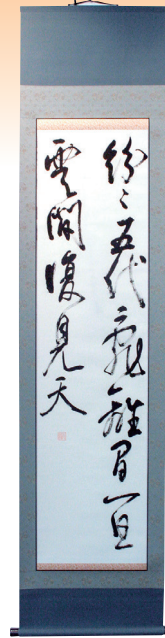 紛々五代亂離間一旦
雲開復見天